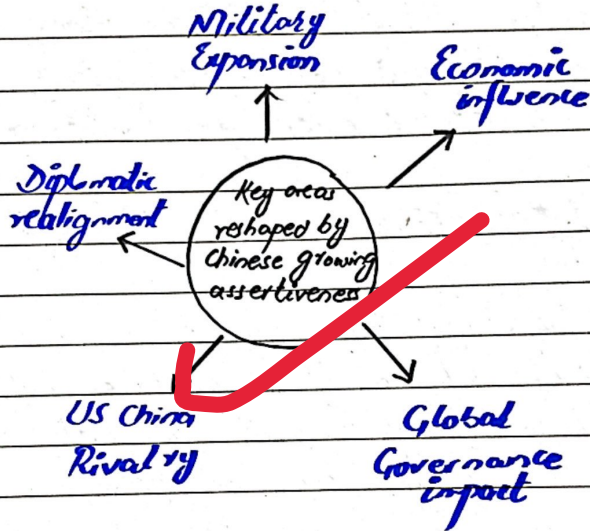 Military
Expansion
Economic
influence
Diplmatic
realignment
Key areas
reshaped by
Chinese growing
assertiveness
US China
Rivalry
Global
Governance
impact